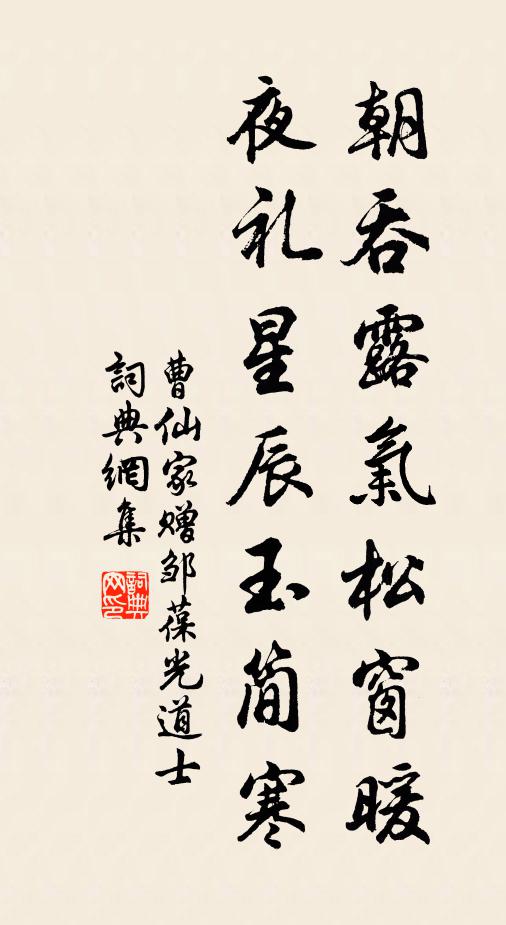 朝吞露氣松窗暖
夜礼星辰玉简寒
曹仙家赠邹葆光道士
詞典網集
詞典网印